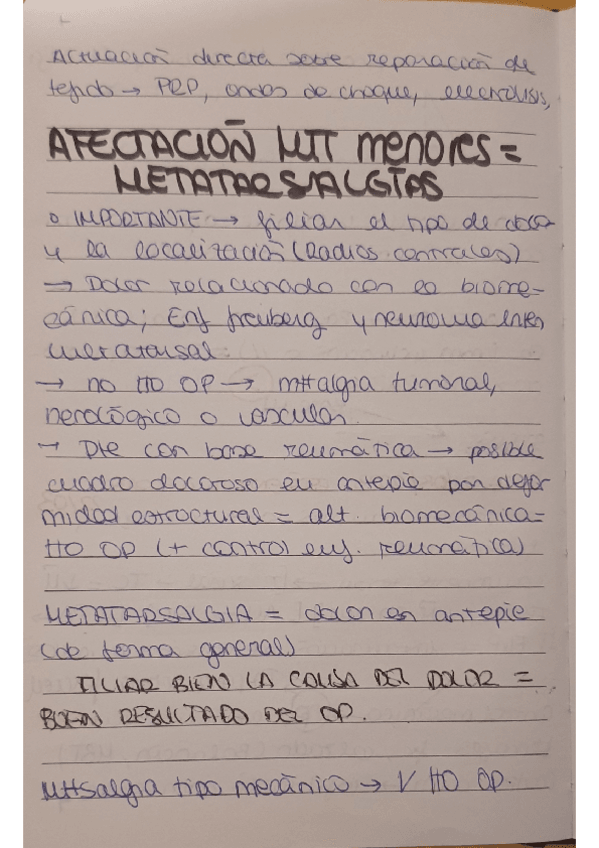 Actuación directa sobre reparación de
tejido → PRP, ondas de choque, electrólisis,
AFECTACIÓN MTT MENORES =
METATARSALGIAS
o IMPORTANTE → filiar el tipo de dolor
y la localización (Radios centrales)
→ Dolor relacionado con la biome-
cánica; Enf freuberg y neuroma inter
metatarsal.
→ no tto OP → mttalgia tumoral,
nerológico o vascular.
→ Pte con base reumática → posible
cuadro doloroso en antepie por defor
midad estructural = alt. biomecánica =
tto OP (+ control enf. reumática)
METATARSALGIA = dolor en antepie
(de forma general)
FILIAR BIEN LA CAUSA DEL DOLOR =
BUEN RESULTADO DEL OP.
Mttsalgia tipo mecánico → √ tto OP.